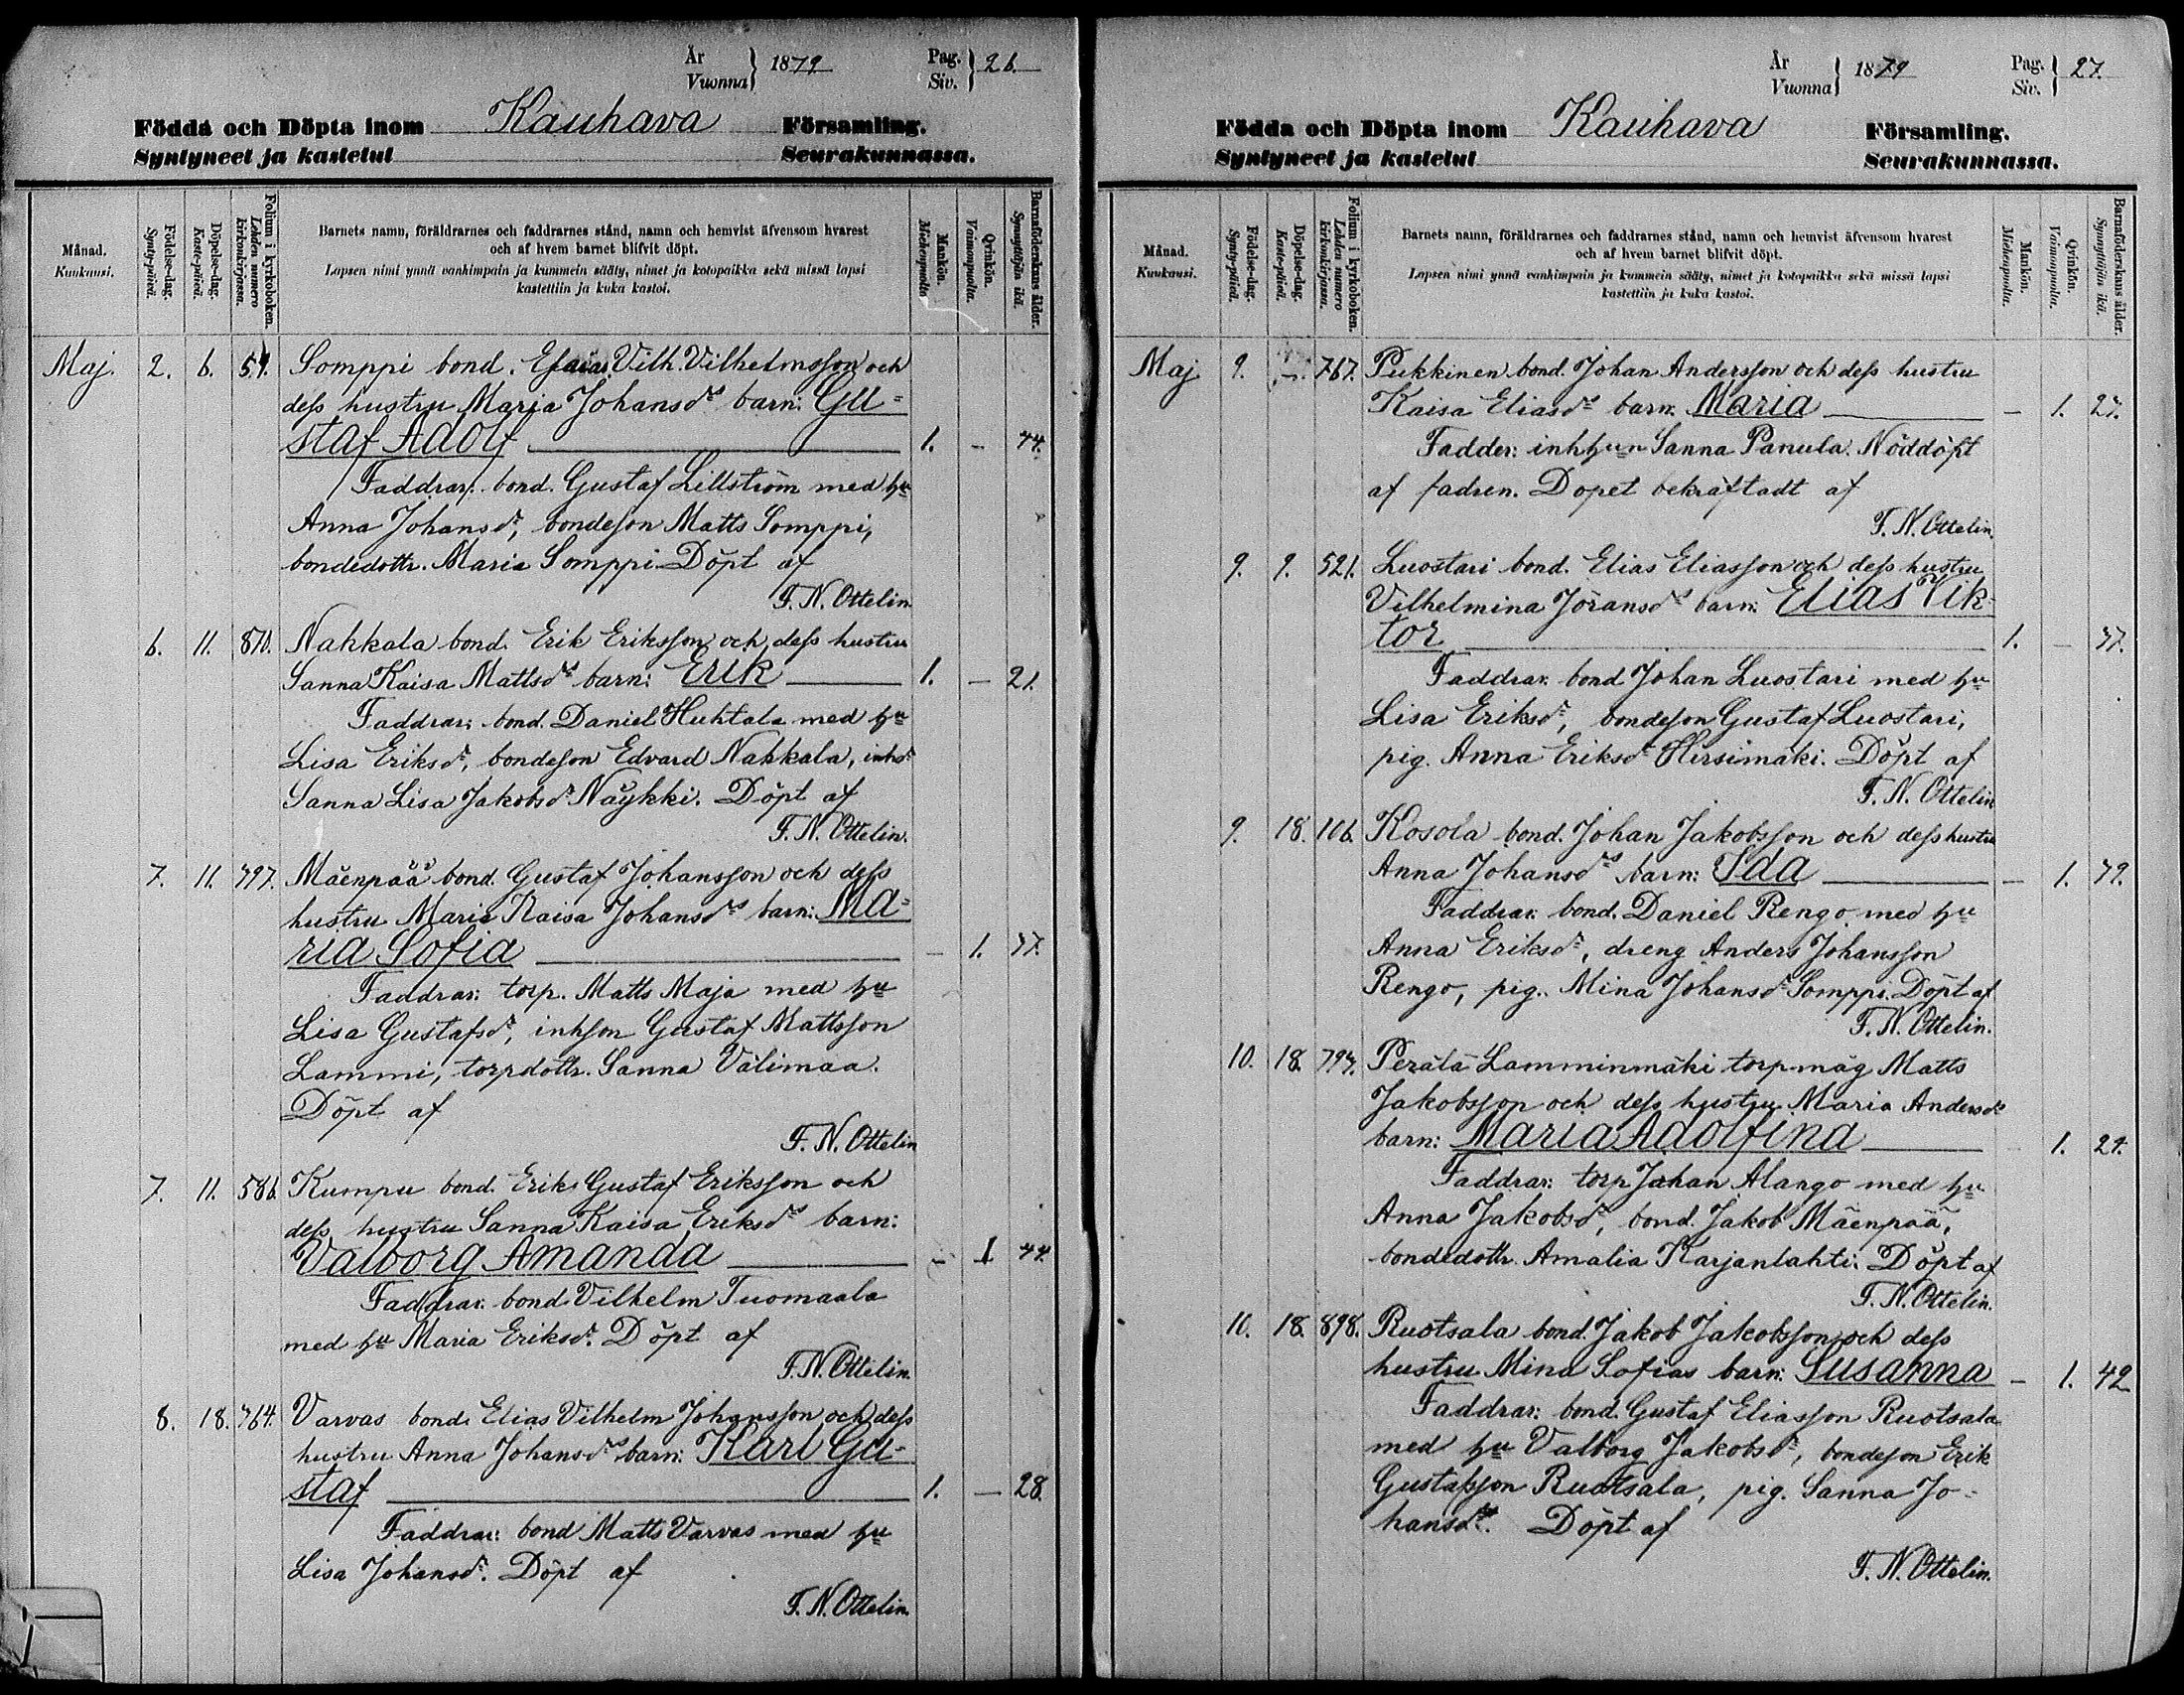 År
Vuonna } 1879 Pag.
Siv. } 26.
Födda och Döpta inom Kauhava Församling.
Syntyneet ja kastetut Seurakunnassa.
Månad.
Kuukausi.
Födelse-dag.
Synty-päivä.
Döpelse-dag.
Kaste-päivä.
Folium i kyrkoboken.
Lehden numero
kirkonkirjassa.
Barnets namn, föräldrarnes och faddrarnes stånd, namn och hemvist äfvensom hvarest
och af hvem barnet blifvit döpt.
Lapsen nimi ynnä vanhimpain ja kummein sääty, nimet ja kotopaikka sekä missä lapsi
kastettiin ja kuka kastoi.
Mankön.
Miehenpuolta
Qvinkön.
Vaimonpuolta.
Barnaföderskans ålder.
Synnyttäjän ikä.
Maj. 2. 6. Somppi bond. Esaias Vilh. Vilhelmsson och
dess hustru Maria Johansd:s barn: Gu=
staf Adolf 1. – 44.
Faddrar: bond. Gustaf Lillström med hu
Anna Johansd:r, bondeson Matts Somppi,
bondedottr. Maria Somppi. Döpt af
F. N. Ottelin.
6. 11. 870. Nahkala bond. Erik Eriksson och dess hustru
Sanna Kaisa Mattsd:s barn: Erik 1. – 21.
Faddrar: bond. Daniel Huhtala med hu
Lisa Eriksd:r, bondeson Edvard Nahkala, inhd:r
Sanna Lisa Jakobsd:r Näykki. Döpt af
F. N. Ottelin.
7. 11. 797. Mäenpää bond. Gustaf Johansson och dess
hustru Maria Kaisa Johansd:s barn: Ma=
ria Sofia – 1. 37.
Faddrar: torp. Matts Maja med hu
Lisa Gustafsd:r, inhson Gustaf Mattsson
Lammi, torpdottr. Sanna Välimaa.
Döpt af
F. N. Ottelin
7. 11. 586. Kumpu bond. Erik Gustaf Eriksson och
dess hustru Sanna Kaisa Eriksd:s barn:
Valborg Amanda – 1 44.
Faddrar: bond. Vilhelm Tuomaala
med hu Maria Eriksd:r. Döpt af
F. N. Ottelin.
8. 18. 764. Varvas bond. Elias Vilhelm Johansson och dess
hustru Anna Johansd:s barn: Karl Gu=
staf 1. – 28.
Faddrar: bond Matts Varvas med hu
Lisa Johansd:r. Döpt af
F. N. Ottelin.
År
Vuonna } 1879 Pag.
Siv. } 27.
Födda och Döpta inom Kauhava Församling.
Syntyneet ja kastetut Seurakunnassa.
Månad.
Kuukausi.
Födelse-dag.
Synty-päivä.
Döpelse-dag.
Kaste-päivä.
Folium i kyrkoboken.
Lehden numero
kirkonkirjassa.
Barnets namn, föräldrarnes och faddrarnes stånd, namn och hemvist äfvensom hvarest
och af hvem barnet blifvit döpt.
Lapsen nimi ynnä vanhimpain ja kummein sääty, nimet ja kotopaikka sekä missä lapsi
kastettiin ja kuka kastoi.
Mankön.
Miehenpuolta.
Qvinkön.
Vaimonpuolta.
Barnaföderskans ålder.
Synnyttäjän ikä.
Maj 9. 767. Pukkinen bond. Johan Andersson och dess hustru
Kaisa Eliasd:s barn: Maria – 1. 27.
Fadder: inhhu:n Sanna Panula. Nöddöpt
af fadren. Dopet bekräftadt af
F. N. Ottelin.
9. 9. 521. Luostari bond. Elias Eliasson och dess hustru
Vilhelmina Jöransd:s barn: Elias Vik=
tor 1. – 37.
Faddrar: bond Johan Luostari med hu
Lisa Eriksd:r, bondeson Gustaf Luostari,
pig. Anna Eriksd:r Hirsimäki. Döpt af
F. N. Ottelin
9. 18. 106. Kosola bond. Johan Jakobsson och dess hustru
Anna Johansd:s barn: Ida – 1. 39.
Faddrar: bond. Daniel Rengo med hu
Anna Eriksd:r, dreng Anders Johansson
Rengo, pig. Mina Johansd:r Somppi. Döpt af
F. N. Ottelin.
10. 18. 794. Perälä Lamminmäki torp.måg Matts
Jakobsson och dess hustru Maria Andersd:s
barn: Maria Adolfina 1. 24.
Faddrar: torp Johan Alango med hu
Anna Jakobsd:r, bond. Jakob Mäenpää,
bondedottr. Amalia Karjanlahti. Döpt af
F. N. Ottelin.
10. 18. 898. Ruotsala bond. Jakob Jakobsson och dess
hustru Mina Sofias barn: Susanna – 1. 42
Faddrar: bond. Gustaf Eliasson Ruotsala
med hu Valborg Jakobsd:r, bondeson Erik
Gustafsson Ruotsala, pig. Sanna Jo=
hansd:r. Döpt af
F. N. Ottelin.